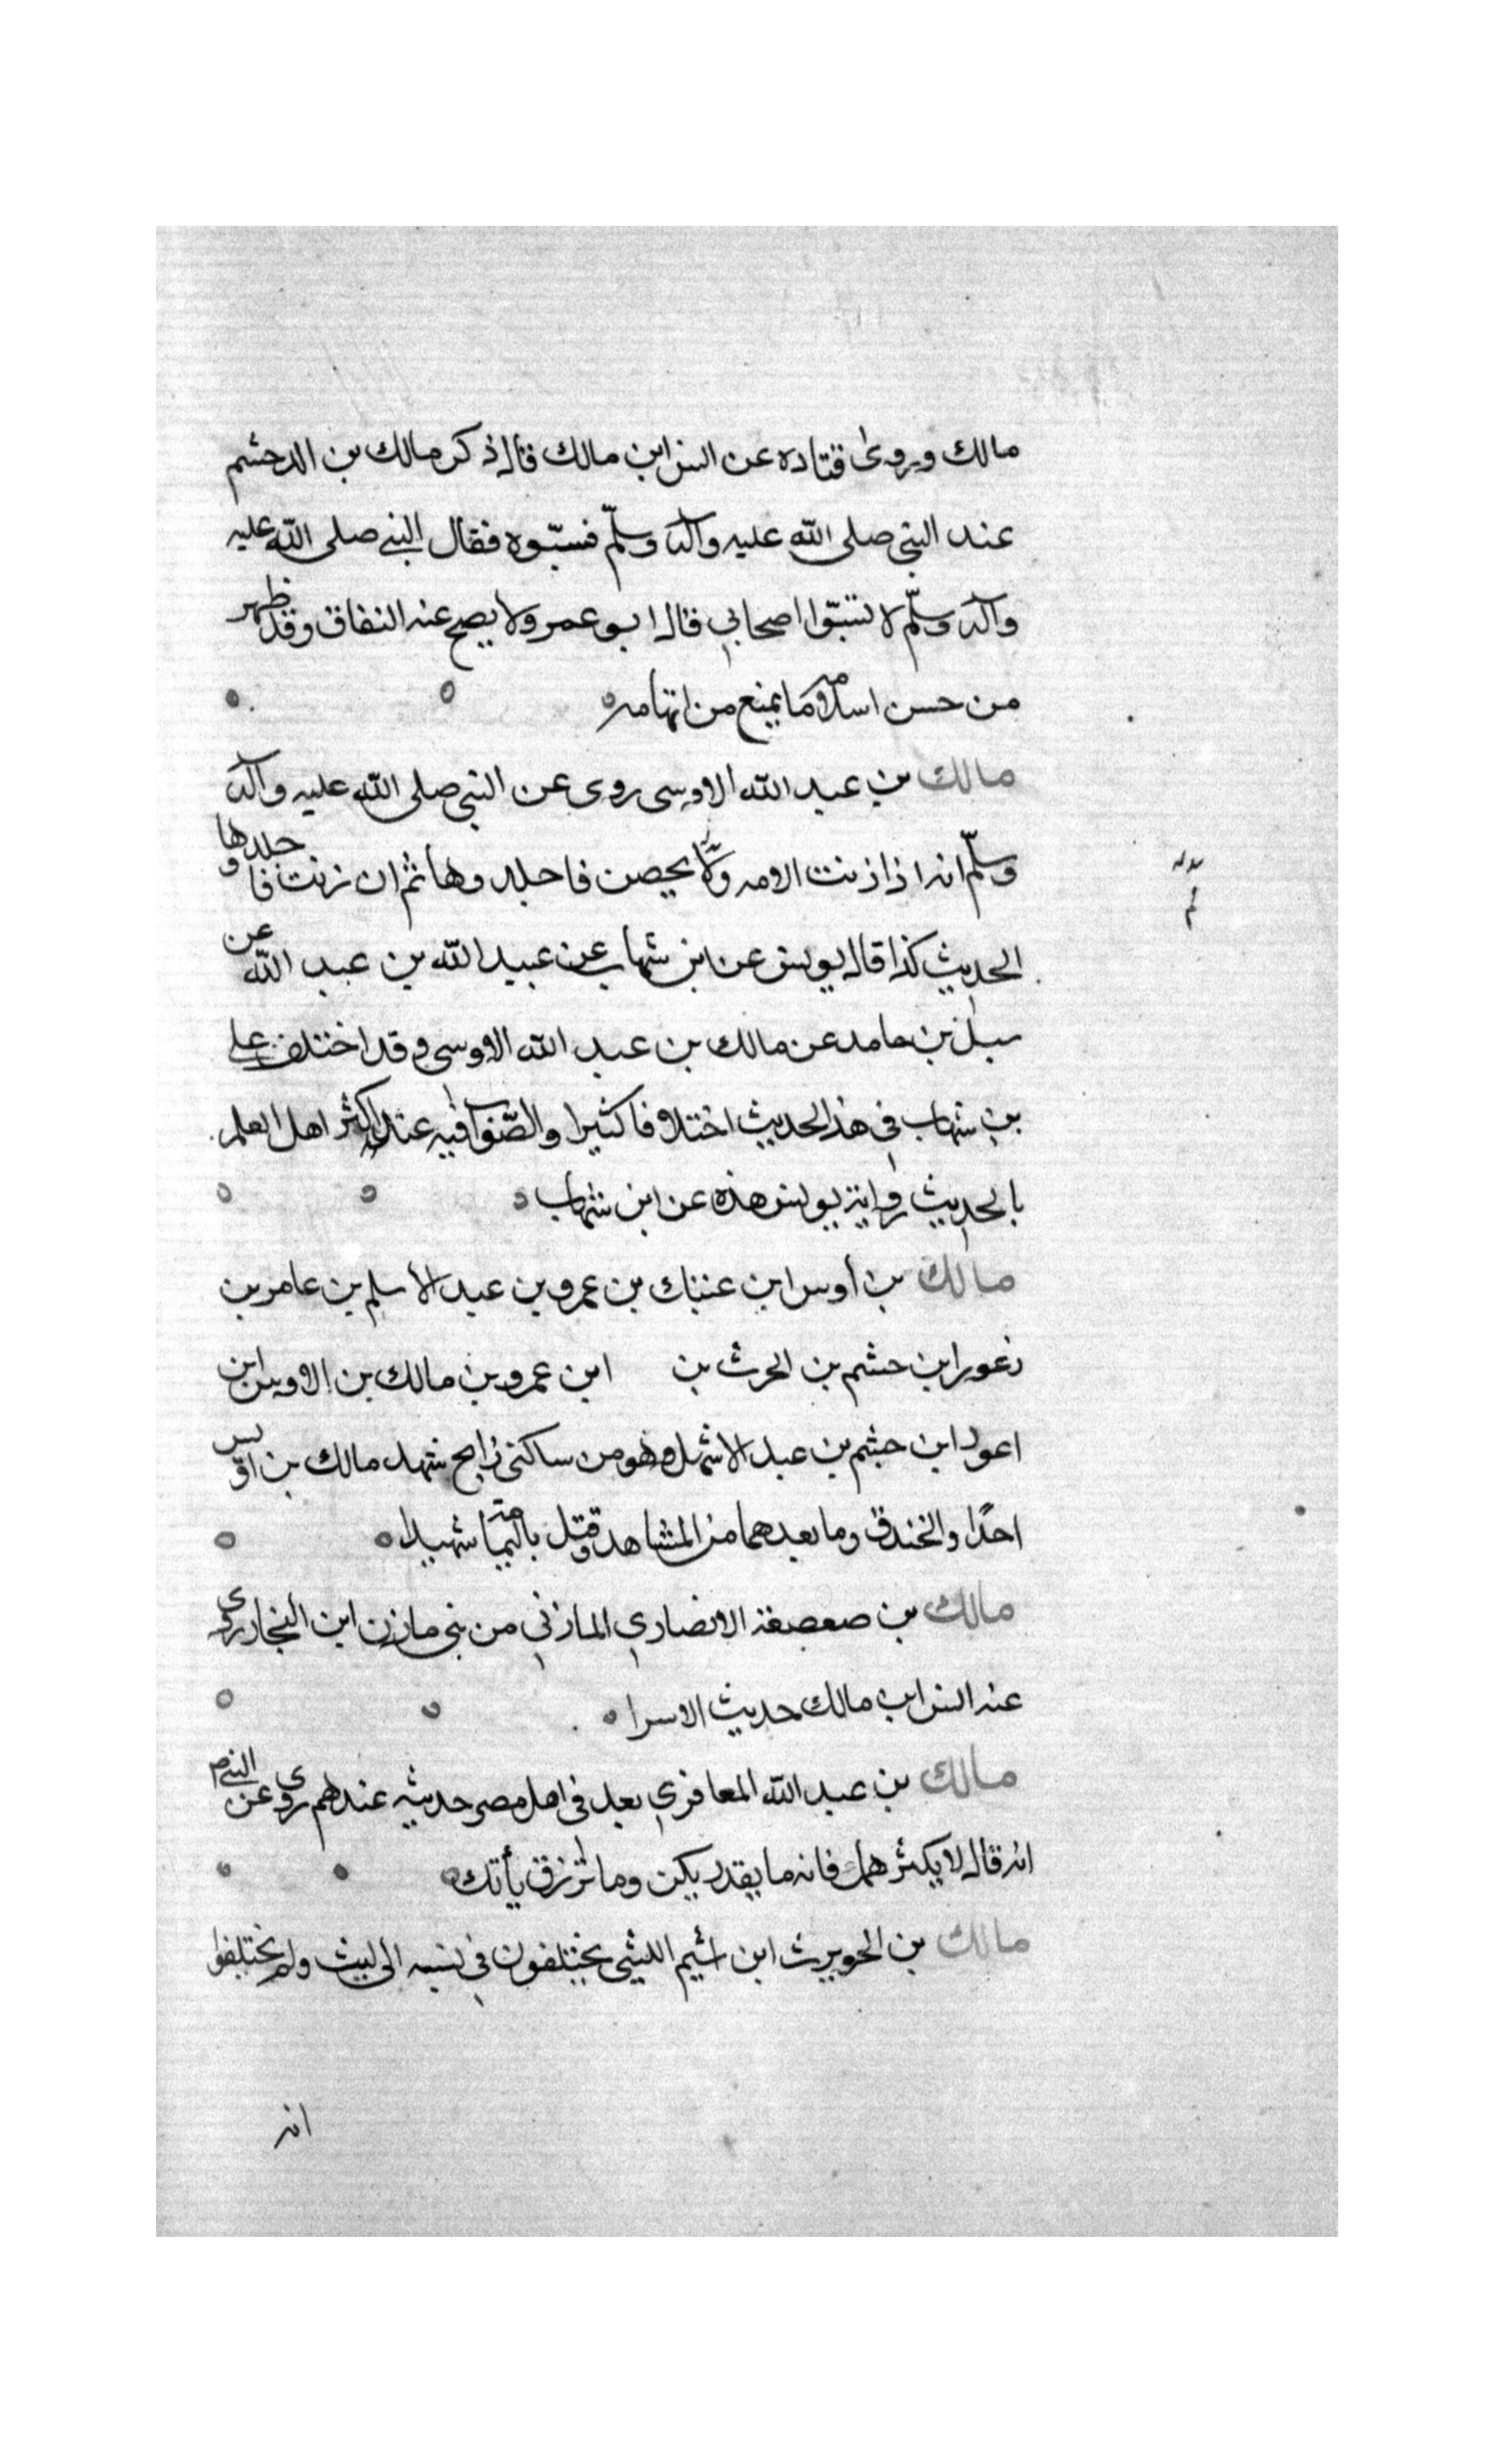 مالك ويروى قتاده عن انس ابن مالك قال ذكر مالك بن الدخشم
عند النبي صلى الله عليه وآله وسلّم فسبّوه فقال النبي صلى الله عليه
وآله وسلّم لا تسبّوا اصحابي قال ابو عمر ولا يصح عنه النفاق وقد ظهر
من حسن اسلامه ما يمنع من اتهامه
مالك بن عبد الله الاوسى روى عن النبي صلى الله عليه وآله
وسلّم انه اذا زنت الامه ولم يحصن فاجلدوها ثم ان زنت فاجلدوها
الحديث كذا قال يونس عن ابن شهاب عن عبيد الله بن عبد الله عن
سبل بن حامد عن مالك بن عبد الله الاوسي وقد اختلف على
بن شهاب في هذا الحديث اختلافا كثيرا والصّواب فيه عند اكثر اهل العلم
بالحديث رواية يونس هذه عن ابن شهاب
مالك بن أوس ابن عتيك بن عمرو بن عبد الأسلم بن عامر بن
زعورا بن حشم بن الحرث بن ابن عمرو بن مالك بن الاوس ابن
اعور ابن جشم بن عبد الاشهل وهو من ساكنى زايح شهد مالك بن اوس
احدًا والخندق وما بعدهما من المشاهد وقتل باليمامة شهيدا
مالك بن صعصعة الانصاري المازني من بنى مازن ابن النجار روى
عنه انس ابن مالك حديث الاسرا
مالك بن عبد الله المعافري يعد في اهل مصر حديثه عندهم روى عن النبي م
انه قال لا يكثر همك فانه ما يقدر يكن وما ترزق يأتك
مالك بن الحويرث ابن اشيم الليثي يختلفون في نسبه الى ليث ولم يختلفوا
انه